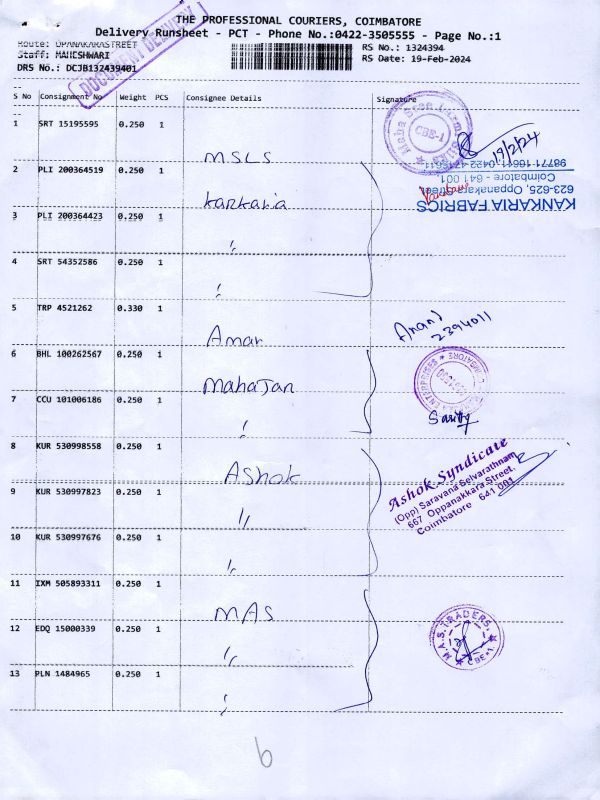 THE PROFESSIONAL COURIERS, COIMBATORE
Delivery Runsheet - PCT - Phone No.:0422-3505555 - Page No.:1
Route: OPANAKARASTREET
RS No.: 1324394
Staff: MAHESHWARI
RS Date: 19-Feb-2024
DRS No.: DCJB132439401
DOCUMENT DELIVERY
S No Consignment No Weight PCS Consignee Details Signature
1 SRT 15195595 0.250 1 MSLS
CBE-1
19/2/24
2 PLI 200364519 0.250 1 Kankaria
KANKARIA FABRICS
623-625, Oppanakara Street,
Coimbatore - 641 001.
3 PLI 200364423 0.250 1 "
4 SRT 54352586 0.250 1 "
5 TRP 4521262 0.330 1 Amar
Anand
2394011
6 BHL 100262567 0.250 1 Mahajan
ENTERPRISES
COIMBATORE
7 CCU 101006186 0.250 1 "
8 KUR 530998558 0.250 1 Ashok
Ashok Syndicate
(Opp) Saravana Selvarathnam
667 Oppanakkara Street,
Coimbatore 641 001
9 KUR 530997823 0.250 1 "
10 KUR 530997676 0.250 1 "
11 IXM 505893311 0.250 1 MAS
M.A.S. TRADERS,
CBE-1.
12 EDQ 15000339 0.250 1 "
13 PLN 1484965 0.250 1 "
6